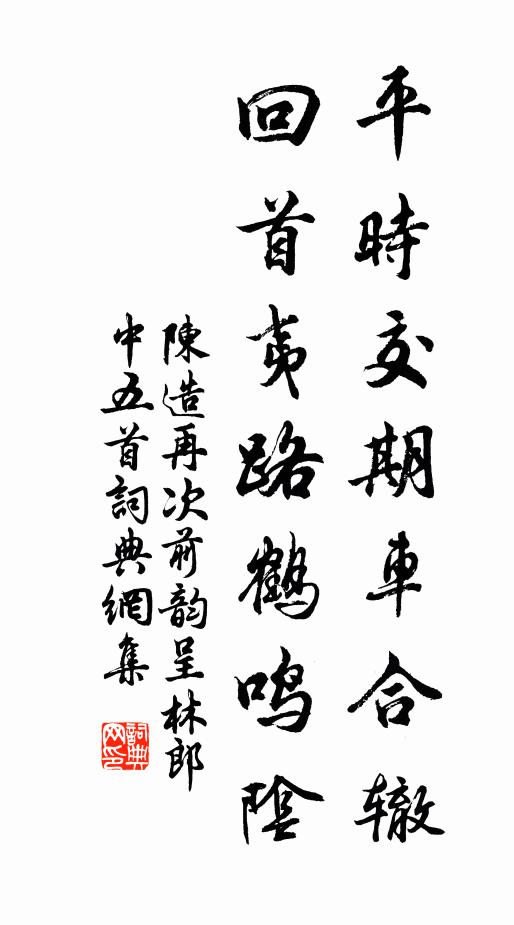 平時交期車合辙
回首夷路鹤鸣陰
陳造再次前韵呈林郎
中五首詞典網集
詞典网印